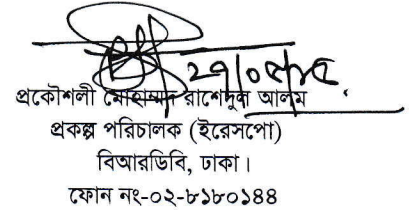 ২৭/০৫/১৫
প্রকৌশলী মোহাম্মদ রাশেদুল আলম
প্রকল্প পরিচালক (ইরেসপো)
বিআরডিবি, ঢাকা।
ফোন নং-০২-৮১৮০১৪৪